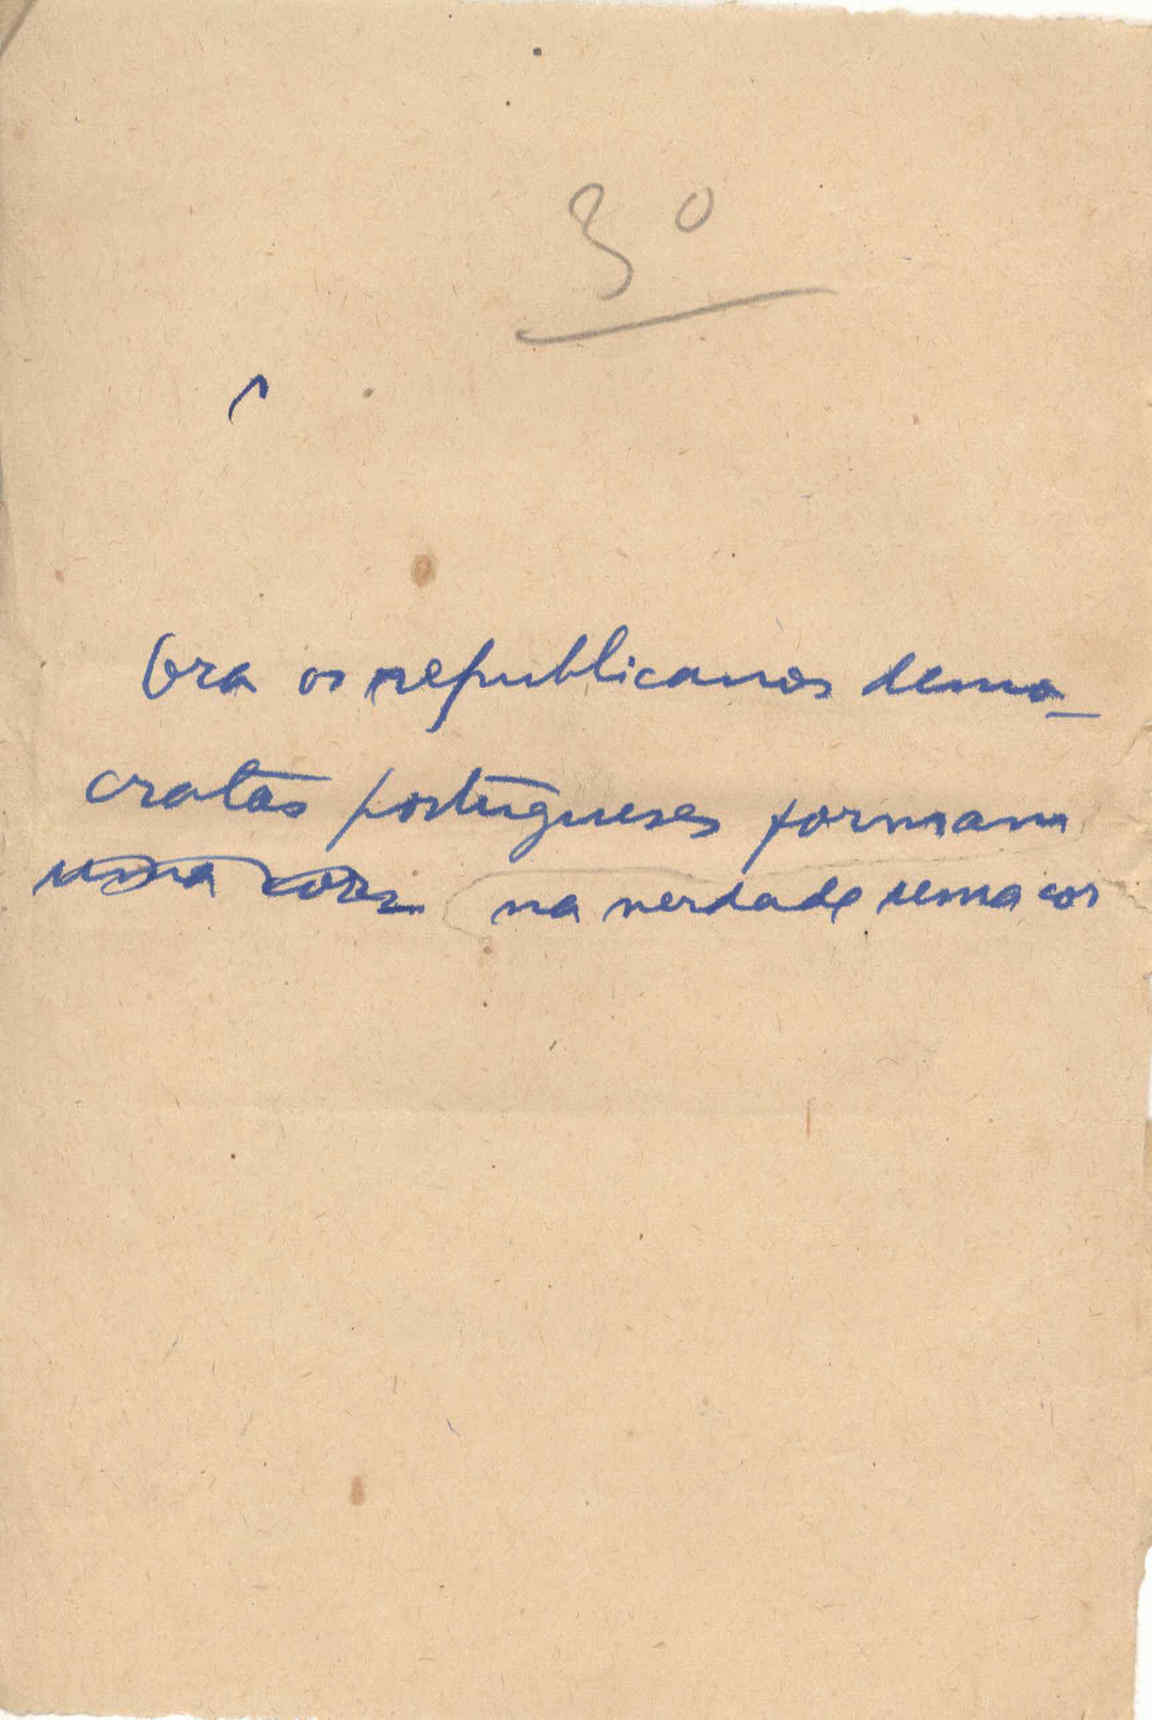 3º
Ora os republicanos demo-
cratas portugueses formam
uma cor na verdade uma cor